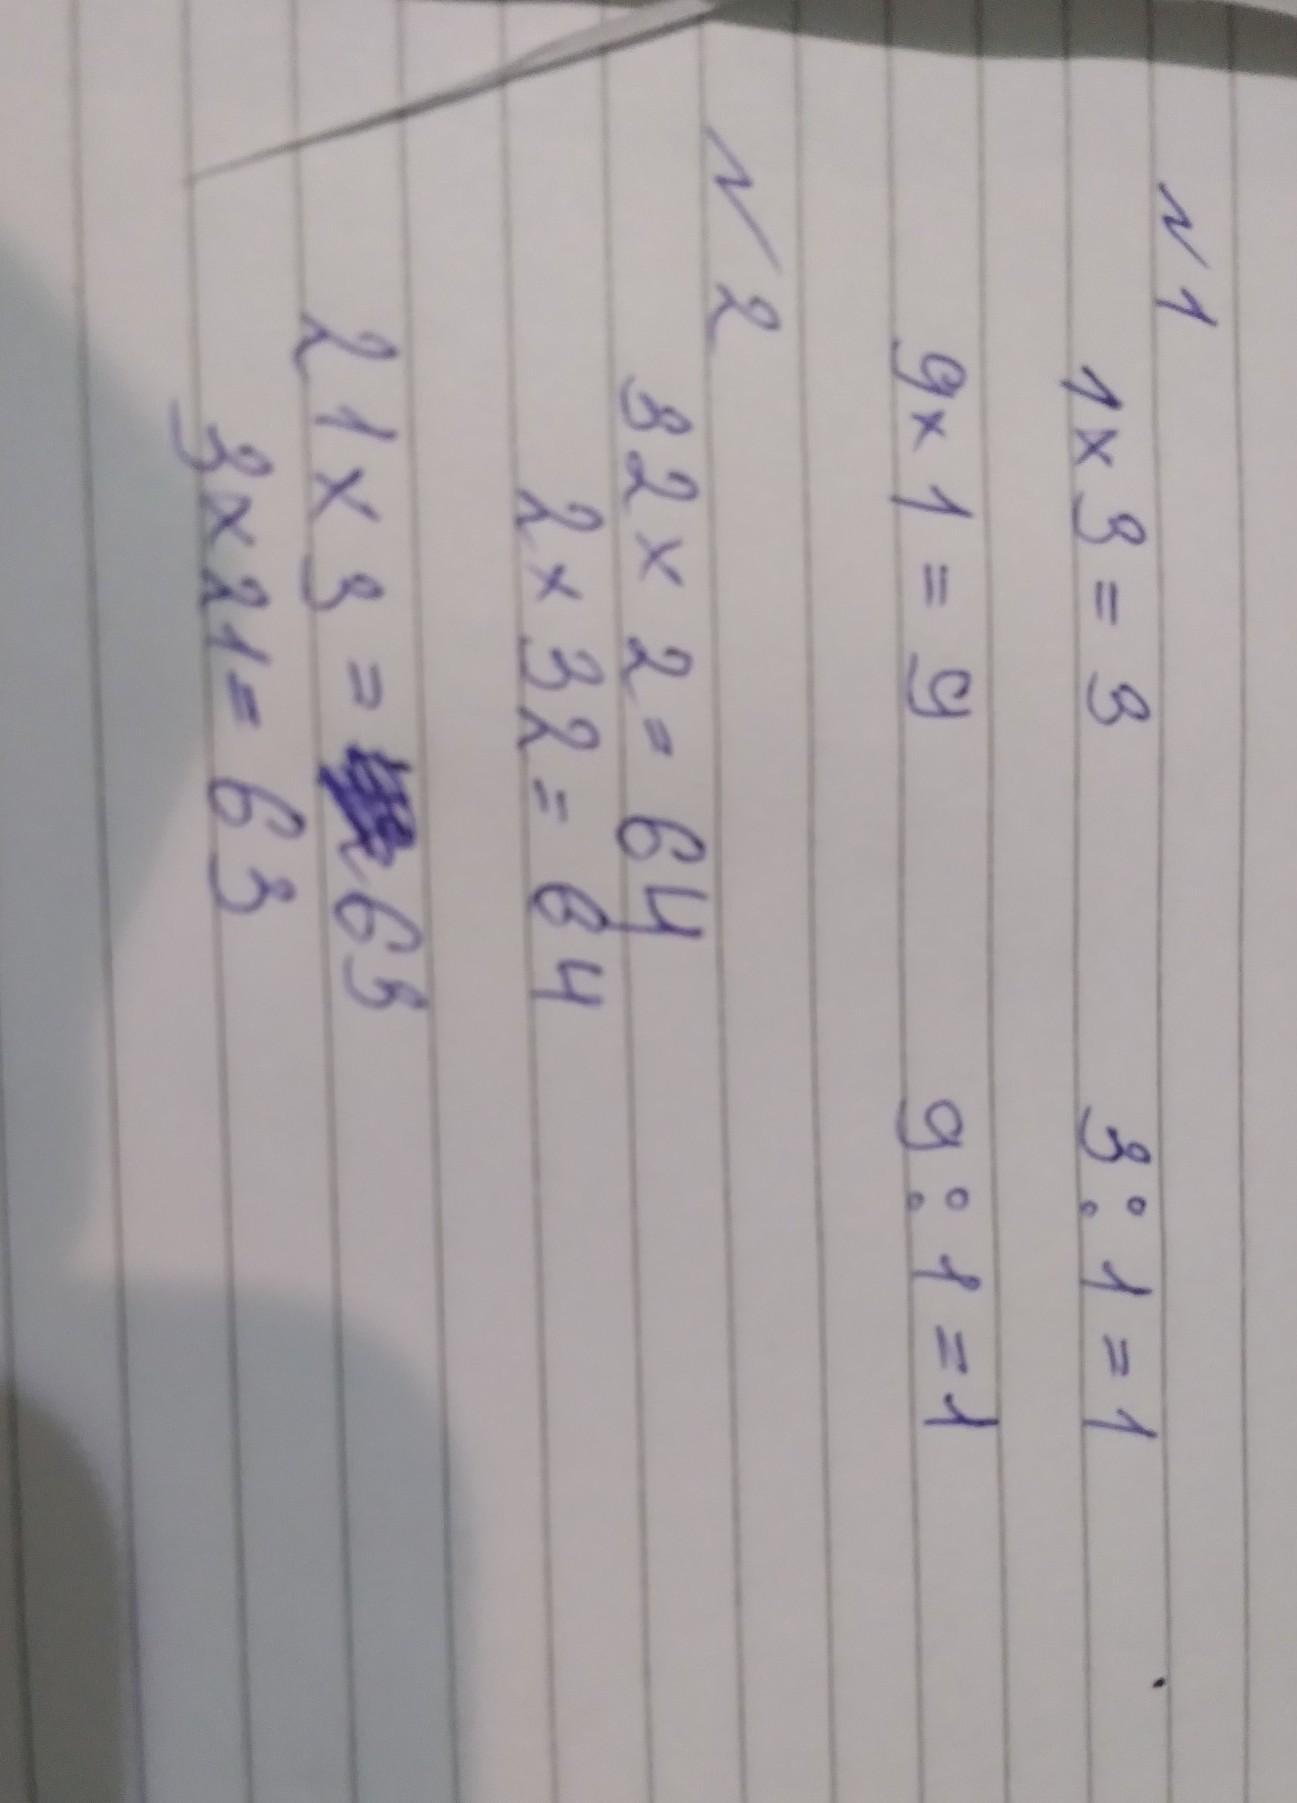 N 1
1 × 3 = 3 3 : 1 = 1
9 × 1 = 9 9 : 1 = 1
N 2
32 × 2 = 64
2 × 32 = 64
21 × 3 = 63
3 × 21 = 63